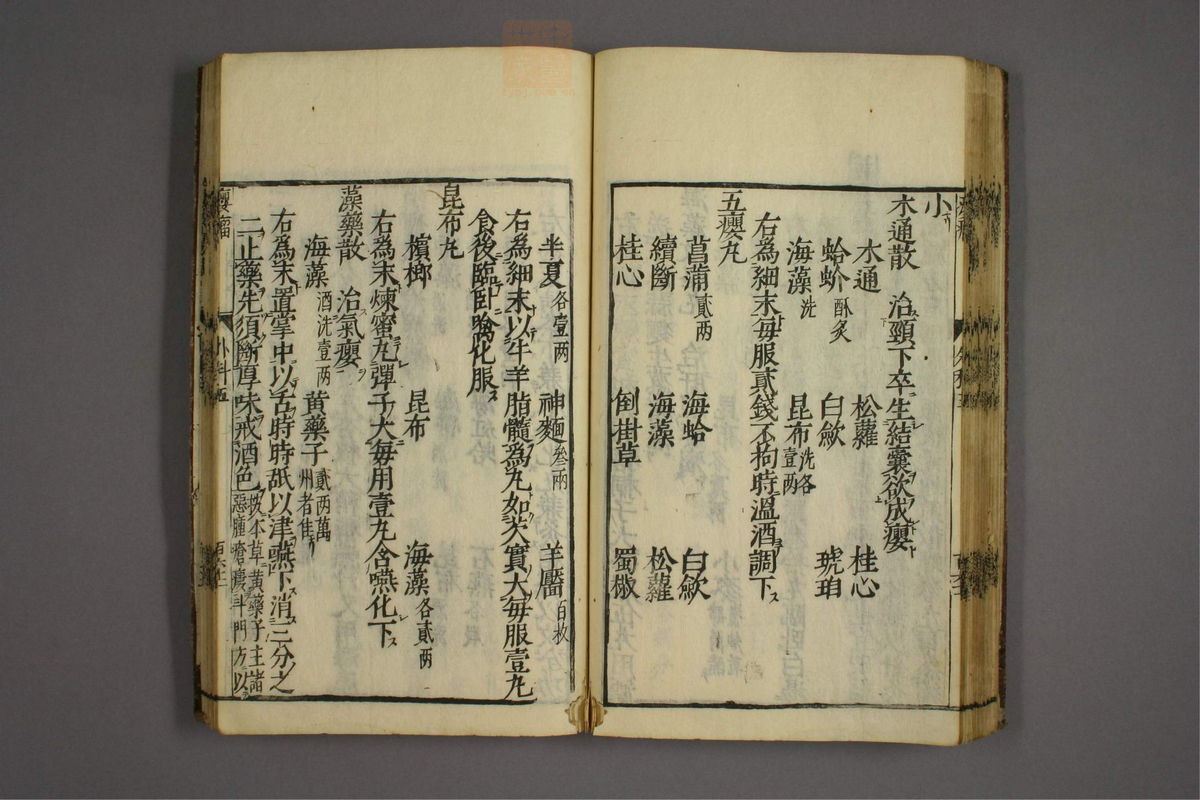 小
木通散　治頸下卒生結囊欲成癭
木通　松蘿　桂心
蛤蚧酥炙　白歛　琥珀
海藻洗　昆布洗各壹两
右為細末毎服貳錢不拘時溫酒調下
五癭丸
菖蒲貳两　海蛤　白歛
續斷　海藻　松蘿
桂心　倒掛草　蜀椒
半夏各壹两　神麯叁兩　羊靨百枚
右為細末以牛羊脂髓為丸如芡實大毎服壹丸
食後臨卧噙化服
昆布丸
檳榔　昆布　海藻各貳两
右為末煉蜜丸彈子大毎用壹丸含嚥化下
藻藥散　治氣癭
海藻酒洗壹两　黄藥子貳两萬州者佳
右為末置掌中以舌時時舐以津嚥下消三分之
二止藥先須斷厚味戒酒色按本草黄藥子主諸惡腫瘡瘻斗門方以
癭瘤
外科五